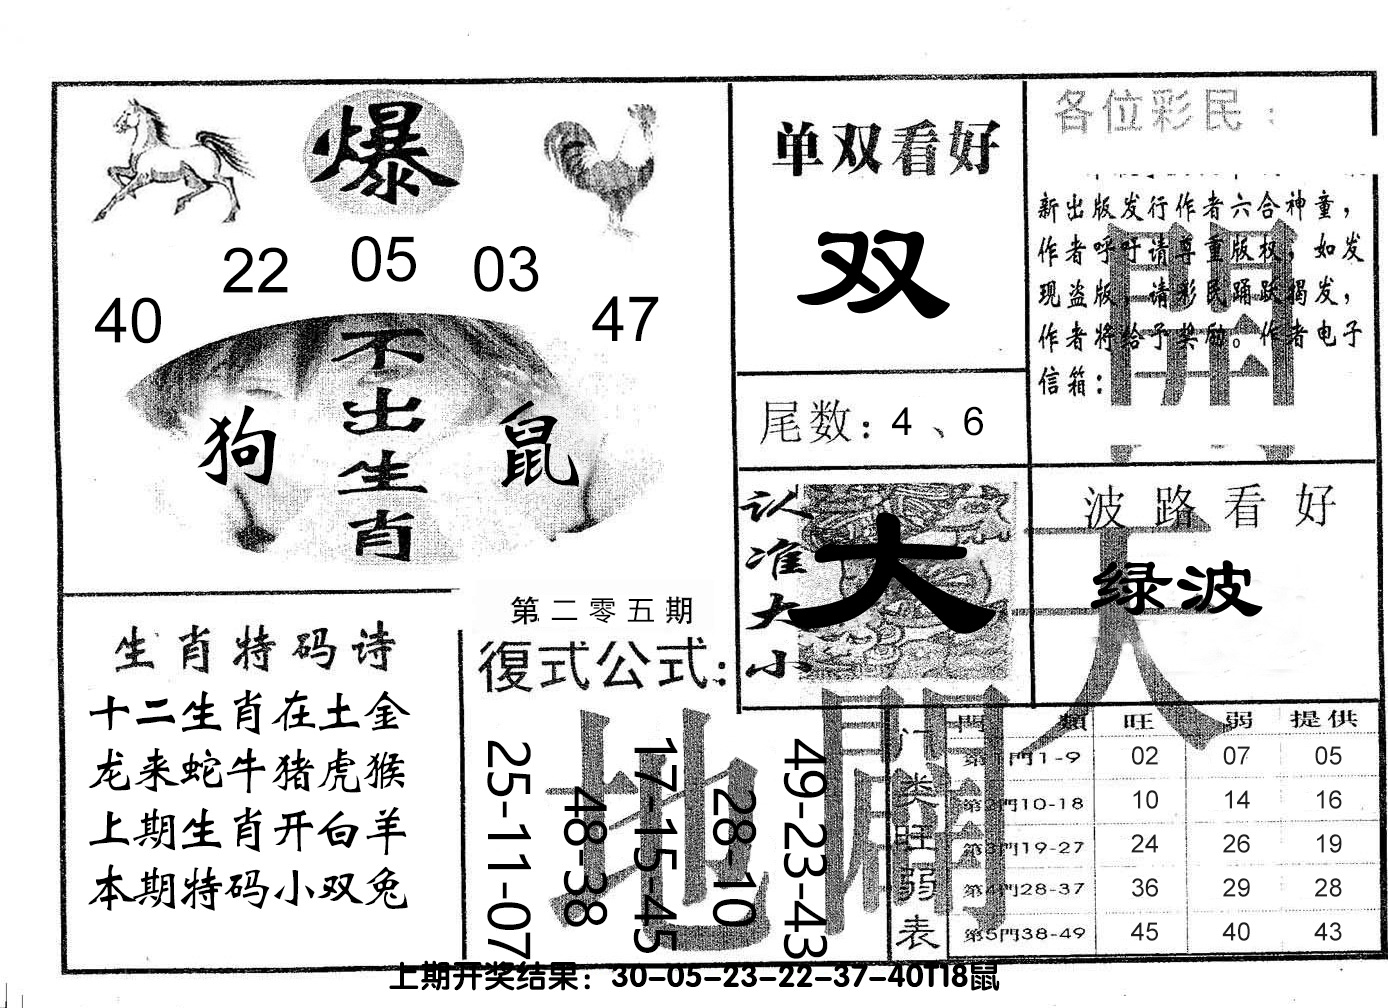 爆
22 05 03
40 47
不出生肖
狗 鼠
单双看好
双
尾数：4、6
各位彩民：
新出版发行作者六合神童，
作者呼吁请尊重版权，如发
现盗版，请彩民踊跃揭发，
作者将给予奖励。作者电子
信箱：
開
认准大小
大
波路看好
绿波
天
生肖特码诗
十二生肖在土金
龙来蛇牛猪虎猴
上期生肖开白羊
本期特码小双兔
第二零五期
復式公式：
25-11-07
48-38
17-15-45
28-10
49-23-43
地
門类旺弱表
門類 旺 弱 提供
第1門1-9 02 07 05
第2門10-18 10 14 16
第3門19-27 24 26 19
第4門28-37 36 29 28
第5門38-49 45 40 43
上期开奖结果：30-05-23-22-37-40T18鼠